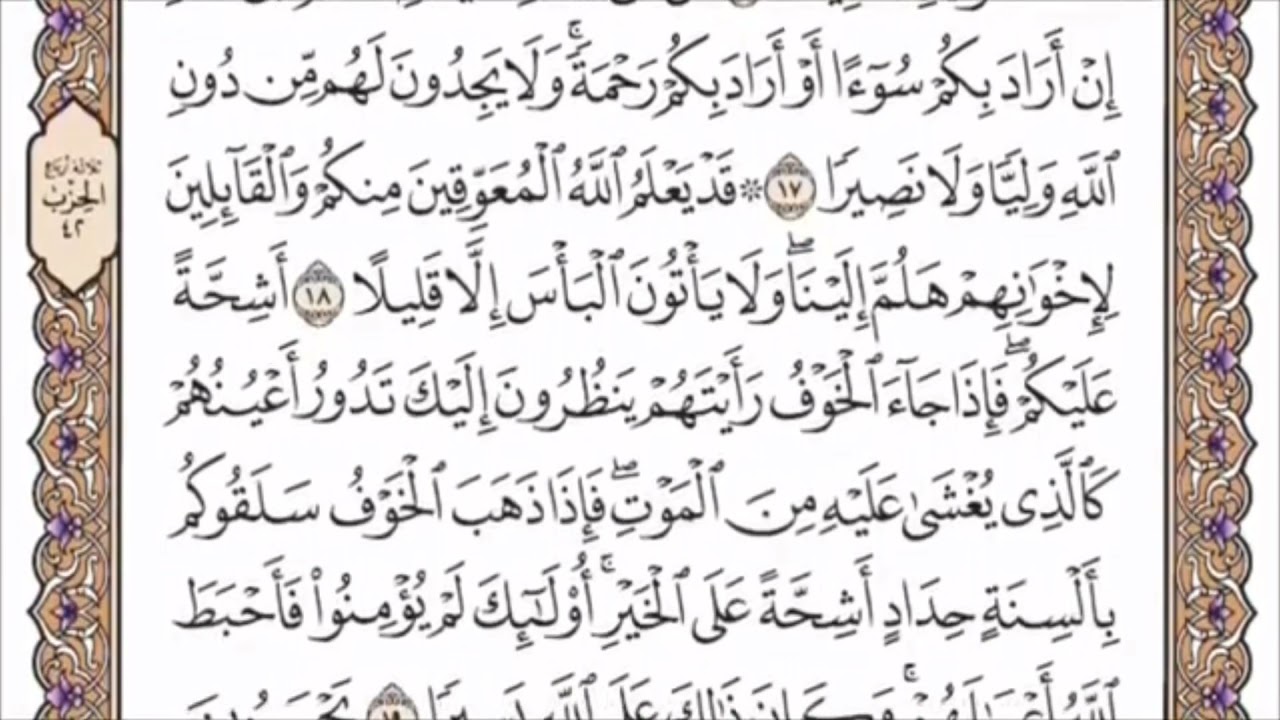 إِنْ أَرَادَ بِكُمْ سُوٓءًا أَوْ أَرَادَ بِكُمْ رَحْمَةً ۚ وَلَا يَجِدُونَ لَهُم مِّن دُونِ
ٱللَّهِ وَلِيًّا وَلَا نَصِيرًا ١٧ ۞ قَدْ يَعْلَمُ ٱللَّهُ ٱلْمُعَوِّقِينَ مِنكُمْ وَٱلْقَآئِلِينَ
لِإِخْوَٰنِهِمْ هَلُمَّ إِلَيْنَا ۖ وَلَا يَأْتُونَ ٱلْبَأْسَ إِلَّا قَلِيلًا ١٨ أَشِحَّةً
عَلَيْكُمْ ۖ فَإِذَا جَآءَ ٱلْخَوْفُ رَأَيْتَهُمْ يَنظُرُونَ إِلَيْكَ تَدُورُ أَعْيُنُهُمْ
كَٱلَّذِى يُغْشَىٰ عَلَيْهِ مِنَ ٱلْمَوْتِ ۖ فَإِذَا ذَهَبَ ٱلْخَوْفُ سَلَقُوكُم
بِأَلْسِنَةٍ حِدَادٍ أَشِحَّةً عَلَى ٱلْخَيْرِ ۚ أُو۟لَـٰٓئِكَ لَمْ يُؤْمِنُوا۟ فَأَحْبَطَ
ٱللَّهُ أَعْمَـٰلَهُمْ ۚ وَكَانَ ذَٰلِكَ عَلَى ٱللَّهِ يَسِيرًا ١٩ يَحْسَبُونَ
ثلاثة أرباع
الحزب
٤٢